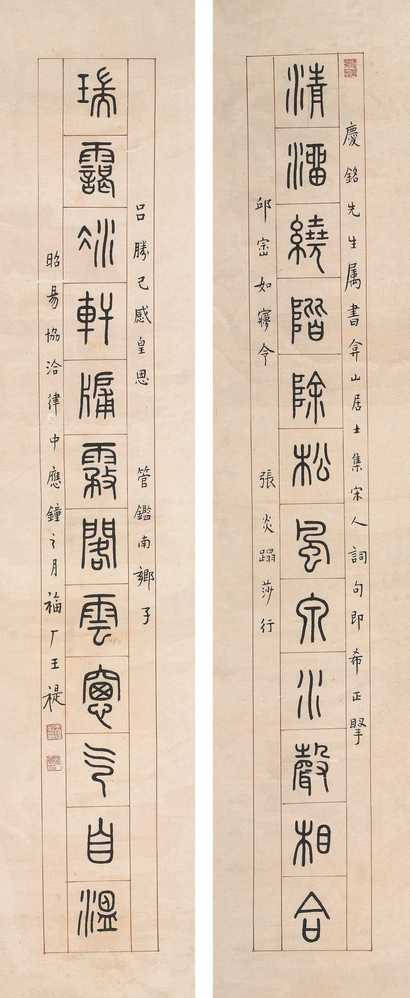 慶銘先生属書弇山居士集宋人詞句即希正掔
清溜繞階除松風泉水聲相合
邱崈如㝱令 張炎蹋莎行
呂勝己感皇恩 管鑑南鄉子
瑞靄冰軒牖霧閣雲窗气自溫
昭昜協洽律中應鐘之月福厂王禔